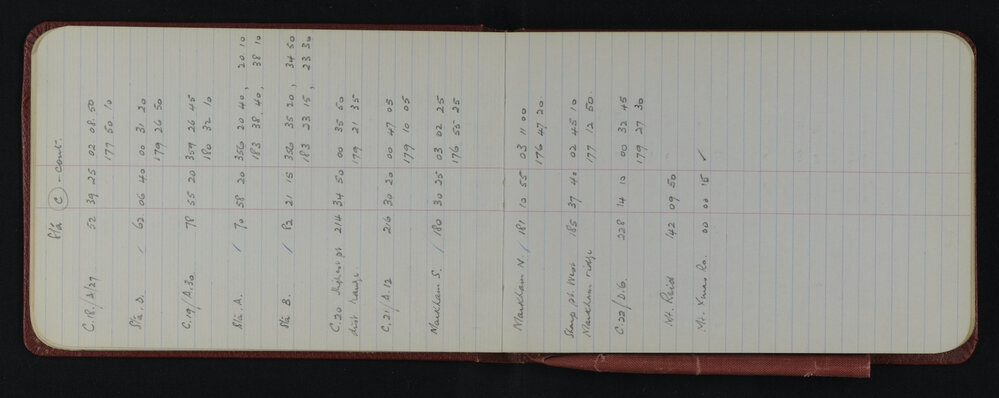 Sta (C) - cont.
C.18./A/27 52 39 25 02 08 50
177 50 10
Sta. D. / 62 06 40 00 31 20
179 26 50
C.19/A.30 78 55 20 359 26 45
180 32 10
Sta. A. / 70 58 20 356 20 40, 20 10
183 38 40, 38 10
Sta B. / 82 21 15 356 35 20, 34 50
183 23 15, 23 30
C.20 Highest pt 214 34 50 00 35 50
dist range 179 21 35
C.21/A.12 216 30 20 00 47 05
179 10 05
Markham S. / 180 30 25 03 02 25
176 55 25
Markham N. / 181 10 55 03 11 00
176 47 20
Sharp pt. West 185 37 40 02 45 10
Markham ridge 177 12 50
C.22/D.6. 228 14 10 00 32 45
179 27 30
Mt. Reid 142 09 50
Mt. Xmas Ro. 00 00 15 ✓